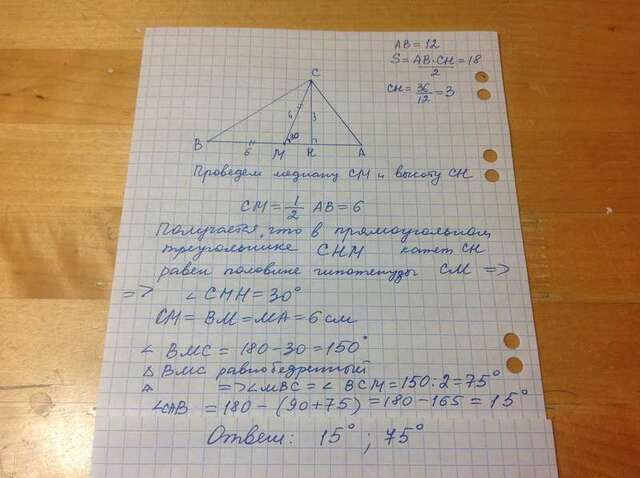 AB = 12
S = AB·CH/2 = 18
CH = 36/12 = 3
C
6
3
30
B
6
M
H
A
Проведем медиану CM и высоту CH
CM = 1/2 AB = 6
Получается, что в прямоугольном
треугольнике CHM катет CH
равен половине гипотенузы CM =>
=> ∠CMH = 30°
CM = BM = MA = 6 см
∠ BMC = 180 - 30 = 150°
Δ BMC равнобедренный
=> ∠MBC = ∠ BCM = 150 : 2 = 75°
∠CAB = 180 - (90 + 75) = 180 - 165 = 15°
Ответ: 15° ; 75°